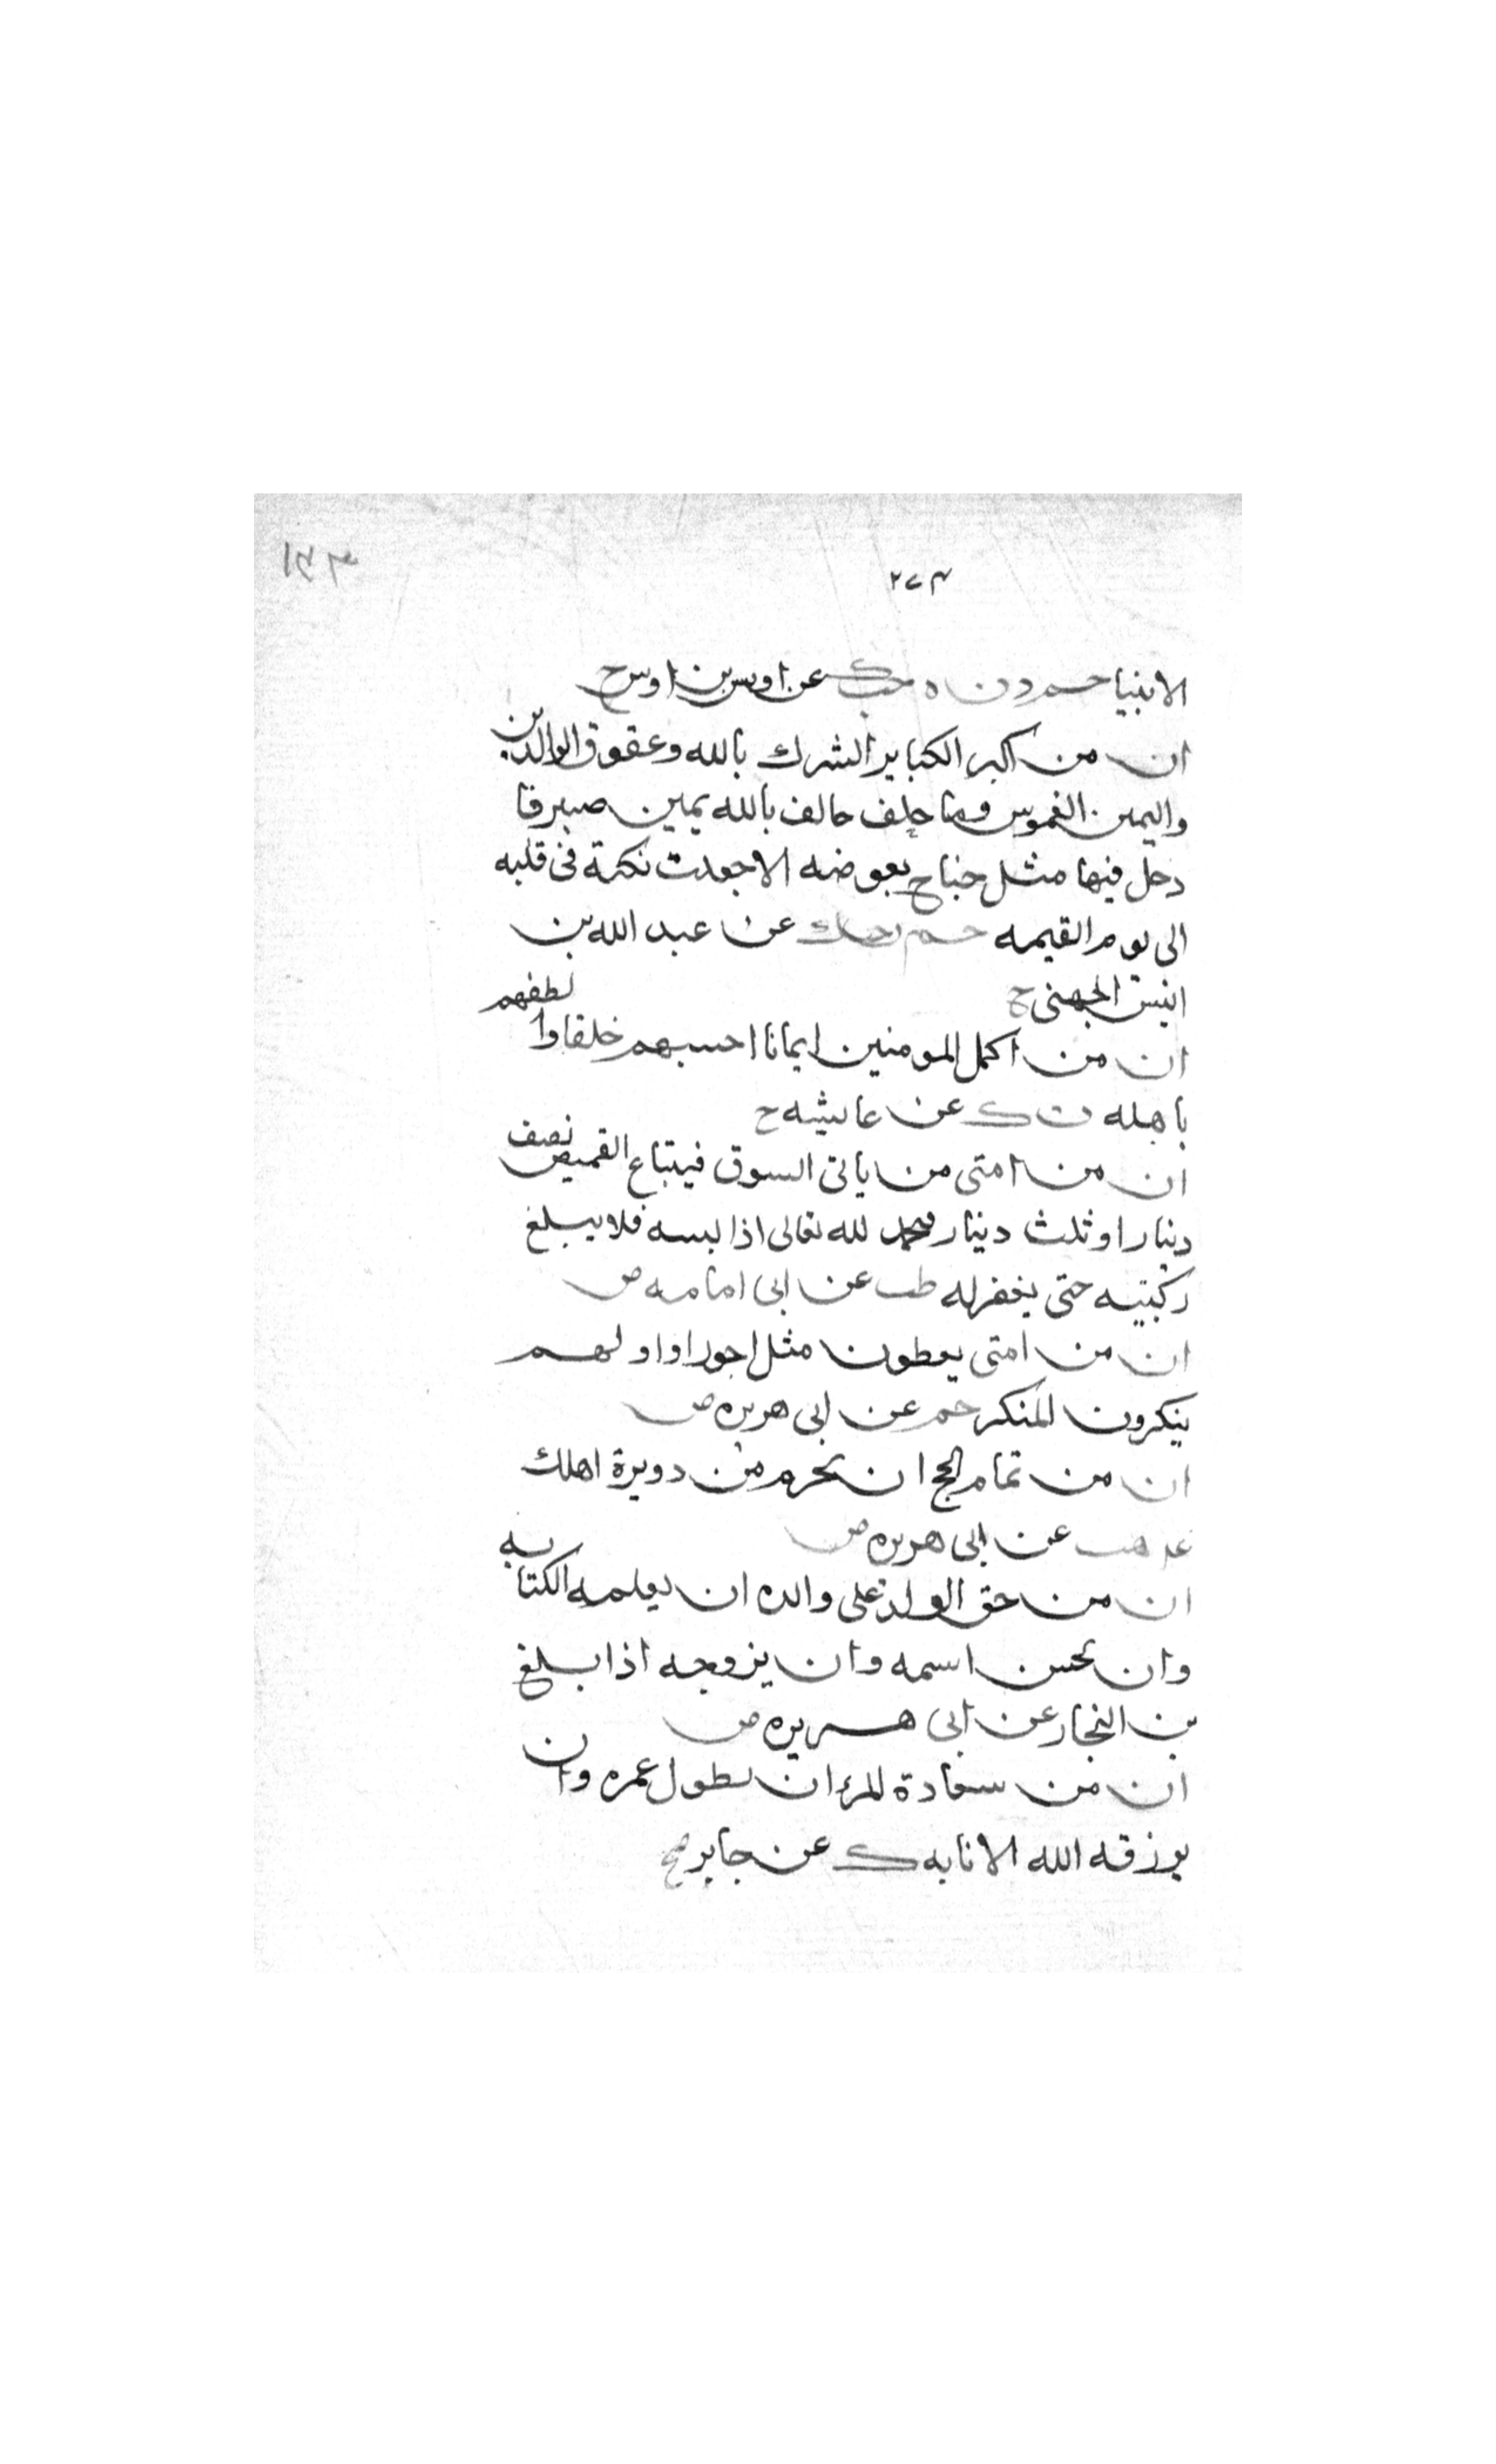 ٢٤٣
الانبيا حم د ن ه حب ك عن اوس بن اوس ح
ان من اكبر الكباير الشرك بالله وعقوق الوالدين
واليمين الغموس وما حلف حالف بالله يمين صبر فا
دخل فيها مثل جناح بعوضه الا جعلت نكتة فى قلبه
الى يوم القيمه حم ت حب ك عن عبد الله بن
انيس الجهنى ح
ان من اكمل المومنين ايمانا احسنهم خلقا والطفهم
باهله ت ك عن عايشه ح
ان من امتى من ياتى السوق فيبتاع القميص بنصف
دينار او ثلث دينار فيحمد لله تعالى اذا لبسه فلا يبلغ
ركبتيه حتى يغفر له طب عن ابى امامه ض
ان من امتى يعطون مثل اجور اولهم
ينكرون المنكر حم عن ابى هريره ض
ان من تمام الحج ان تحرم من دويرة اهلك
عد هب عن ابى هريره ض
ان من حق الولد على والده ان يعلمه الكتابه
وان يحسن اسمه وان يزوجه اذا بلغ
بن النجار عن ابى هريره ض
ان من سعادة المرء ان يطول عمره وان
يرزقه الله الانابه ك عن جابر صح